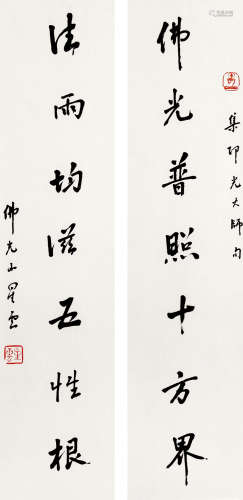 佛光普照十方界
集印光大師句
法雨均滋五性根
佛光山星雲